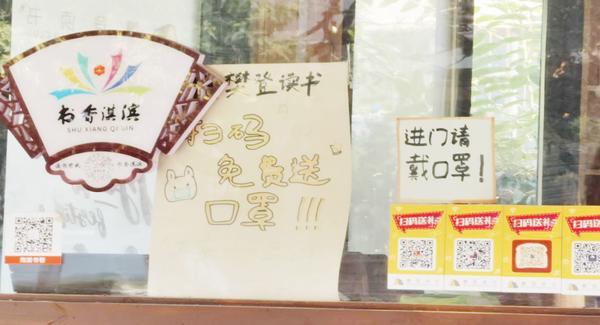 书香淇滨
SHU XIANG QI BIN
樊登读书
扫码
免费送
口罩!!!
进门请
戴口罩!
扫码送礼
扫码送礼
扫码送礼
扫码送